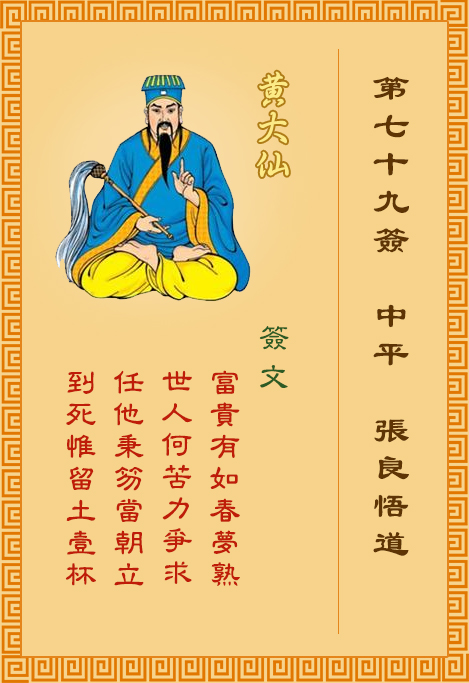 第七十九簽 中平 張良悟道
黃大仙
簽文
富貴有如春夢熟
世人何苦力爭求
任他秉笏當朝立
到死惟留土壹杯